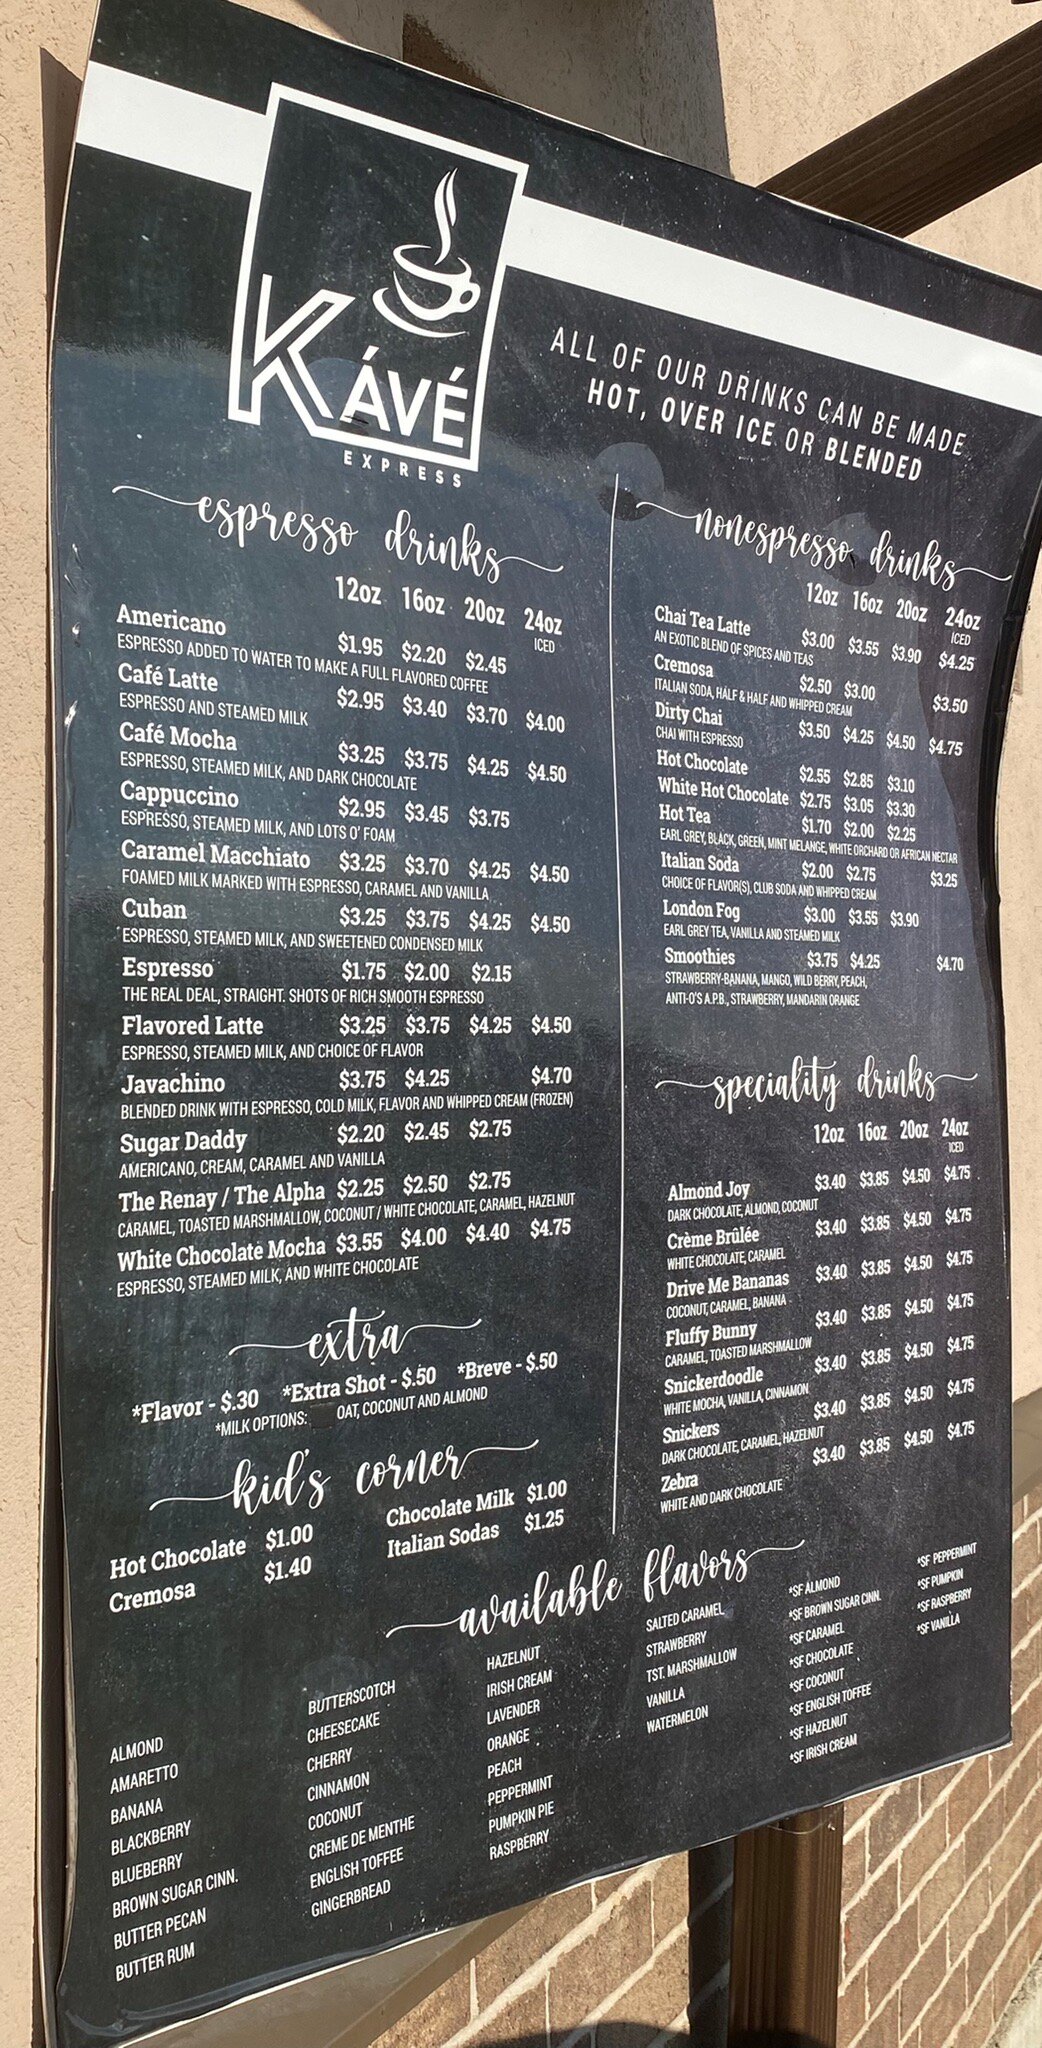 KÁVÉ
EXPRESS
ALL OF OUR DRINKS CAN BE MADE
HOT, OVER ICE OR BLENDED
espresso drinks
12oz 16oz 20oz 24oz
ICED
Americano $1.95 $2.20 $2.45
ESPRESSO ADDED TO WATER TO MAKE A FULL FLAVORED COFFEE
Café Latte $2.95 $3.40 $3.70 $4.00
ESPRESSO AND STEAMED MILK
Café Mocha $3.25 $3.75 $4.25 $4.50
ESPRESSO, STEAMED MILK, AND DARK CHOCOLATE
Cappuccino $2.95 $3.45 $3.75
ESPRESSO, STEAMED MILK, AND LOTS O' FOAM
Caramel Macchiato $3.25 $3.70 $4.25 $4.50
FOAMED MILK MARKED WITH ESPRESSO, CARAMEL AND VANILLA
Cuban $3.25 $3.75 $4.25 $4.50
ESPRESSO, STEAMED MILK, AND SWEETENED CONDENSED MILK
Espresso $1.75 $2.00 $2.15
THE REAL DEAL, STRAIGHT. SHOTS OF RICH SMOOTH ESPRESSO
Flavored Latte $3.25 $3.75 $4.25 $4.50
ESPRESSO, STEAMED MILK, AND CHOICE OF FLAVOR
Javachino $3.75 $4.25 $4.70
BLENDED DRINK WITH ESPRESSO, COLD MILK, FLAVOR AND WHIPPED CREAM (FROZEN)
Sugar Daddy $2.20 $2.45 $2.75
AMERICANO, CREAM, CARAMEL AND VANILLA
The Renay / The Alpha $2.25 $2.50 $2.75
CARAMEL, TOASTED MARSHMALLOW, COCONUT / WHITE CHOCOLATE, CARAMEL, HAZELNUT
White Chocolate Mocha $3.55 $4.00 $4.40 $4.75
ESPRESSO, STEAMED MILK, AND WHITE CHOCOLATE
extra
*Flavor - $.30 *Extra Shot - $.50 *Breve - $.50
*MILK OPTIONS: OAT, COCONUT AND ALMOND
kid's corner
Hot Chocolate $1.00 Chocolate Milk $1.00
Cremosa $1.40 Italian Sodas $1.25
nonespresso drinks
12oz 16oz 20oz 24oz
ICED
Chai Tea Latte $3.00 $3.55 $3.90 $4.25
AN EXOTIC BLEND OF SPICES AND TEAS
Cremosa $2.50 $3.00 $3.50
ITALIAN SODA, HALF & HALF AND WHIPPED CREAM
Dirty Chai $3.50 $4.25 $4.50 $4.75
CHAI WITH ESPRESSO
Hot Chocolate $2.55 $2.85 $3.10
White Hot Chocolate $2.75 $3.05 $3.30
Hot Tea $1.70 $2.00 $2.25
EARL GREY, BLACK, GREEN, MINT MELANGE, WHITE ORCHARD OR AFRICAN NECTAR
Italian Soda $2.00 $2.75 $3.25
CHOICE OF FLAVOR(S), CLUB SODA AND WHIPPED CREAM
London Fog $3.00 $3.55 $3.90
EARL GREY TEA, VANILLA AND STEAMED MILK
Smoothies $3.75 $4.25 $4.70
STRAWBERRY-BANANA, MANGO, WILD BERRY, PEACH,
ANTI-O'S A.P.B., STRAWBERRY, MANDARIN ORANGE
speciality drinks
12oz 16oz 20oz 24oz
ICED
Almond Joy $3.40 $3.85 $4.50 $4.75
DARK CHOCOLATE, ALMOND, COCONUT
Crème Brûlée $3.40 $3.85 $4.50 $4.75
WHITE CHOCOLATE, CARAMEL
Drive Me Bananas $3.40 $3.85 $4.50 $4.75
COCONUT, CARAMEL, BANANA
Fluffy Bunny $3.40 $3.85 $4.50 $4.75
CARAMEL, TOASTED MARSHMALLOW
Snickerdoodle $3.40 $3.85 $4.50 $4.75
WHITE MOCHA, VANILLA, CINNAMON
Snickers $3.40 $3.85 $4.50 $4.75
DARK CHOCOLATE, CARAMEL, HAZELNUT
Zebra $3.40 $3.85 $4.50 $4.75
WHITE AND DARK CHOCOLATE
available flavors
ALMOND
AMARETTO
BANANA
BLACKBERRY
BLUEBERRY
BROWN SUGAR CINN.
BUTTER PECAN
BUTTER RUM
BUTTERSCOTCH
CHEESECAKE
CHERRY
CINNAMON
COCONUT
CREME DE MENTHE
ENGLISH TOFFEE
GINGERBREAD
HAZELNUT
IRISH CREAM
LAVENDER
ORANGE
PEACH
PEPPERMINT
PUMPKIN PIE
RASPBERRY
SALTED CARAMEL
STRAWBERRY
TST. MARSHMALLOW
VANILLA
WATERMELON
*SF ALMOND
*SF BROWN SUGAR CINN.
*SF CARAMEL
*SF CHOCOLATE
*SF COCONUT
*SF ENGLISH TOFFEE
*SF HAZELNUT
*SF IRISH CREAM
*SF PEPPERMINT
*SF PUMPKIN
*SF RASPBERRY
*SF VANILLA